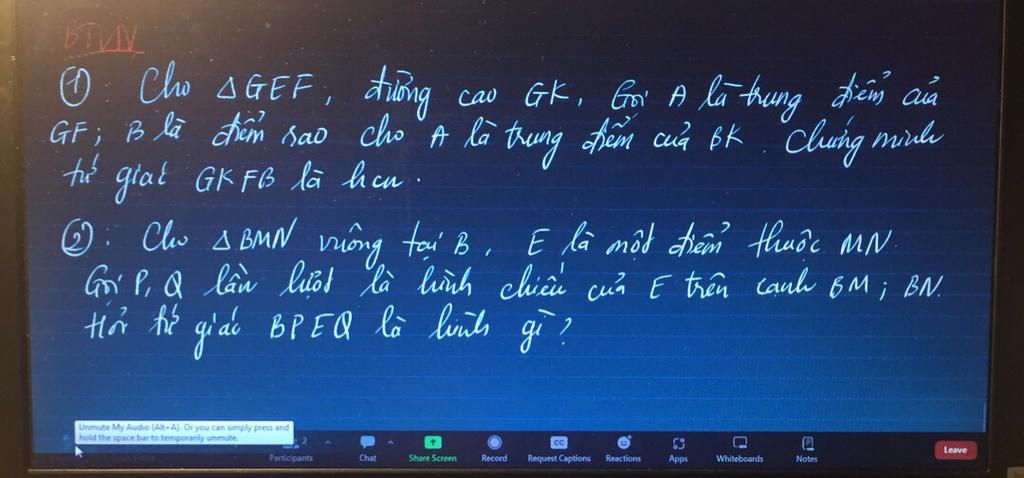 BTVN
① Cho △GEF, đường cao GK. Gọi A là trung điểm của
GF; B là điểm sao cho A là trung điểm của BK. Chứng minh
tứ giác GKFB là hcn.
②: Cho △BMN vuông tại B, E là một điểm thuộc MN.
Gọi P, Q lần lượt là hình chiếu của E trên cạnh BM; BN.
Hỏi tứ giác BPEQ là hình gì?
Unmute My Audio (Alt+A). Or you can simply press and
hold the space bar to temporarily unmute.
2
Participants Chat Share Screen Record Request Captions Reactions Apps Whiteboards Notes Leave